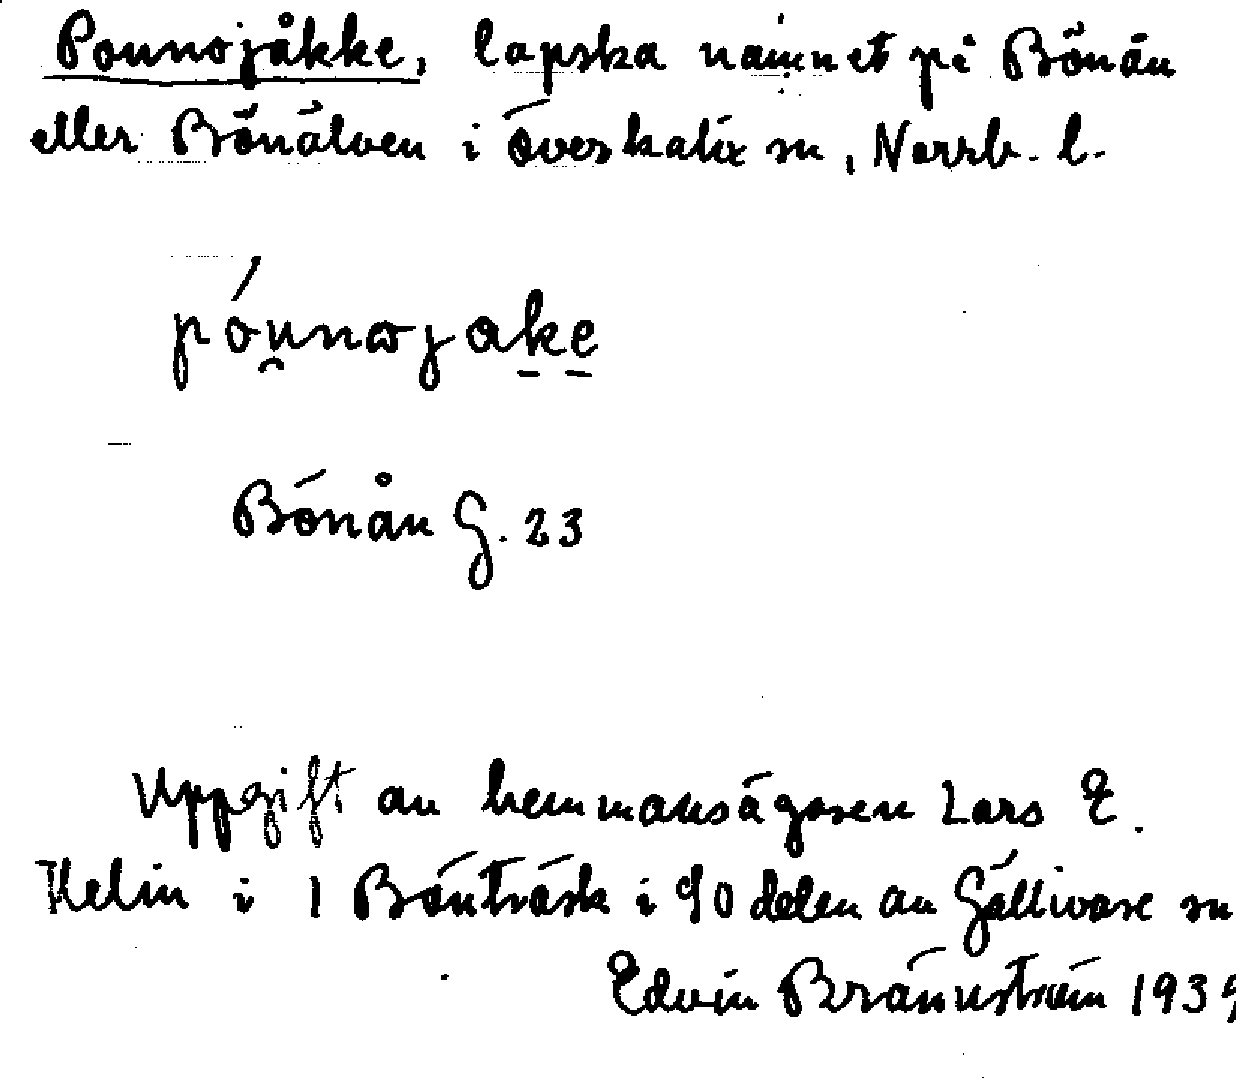 Pounojåkke, lapska namnet på Bönån
eller Bönälven i Överkalix sn, Norrb. l.
Bönån G. 23
Uppgift av hemmansägaren Lars E.
Helin i 1 Bönträsk i SO delen av Gällivare sn
Edvin Brännström 1935